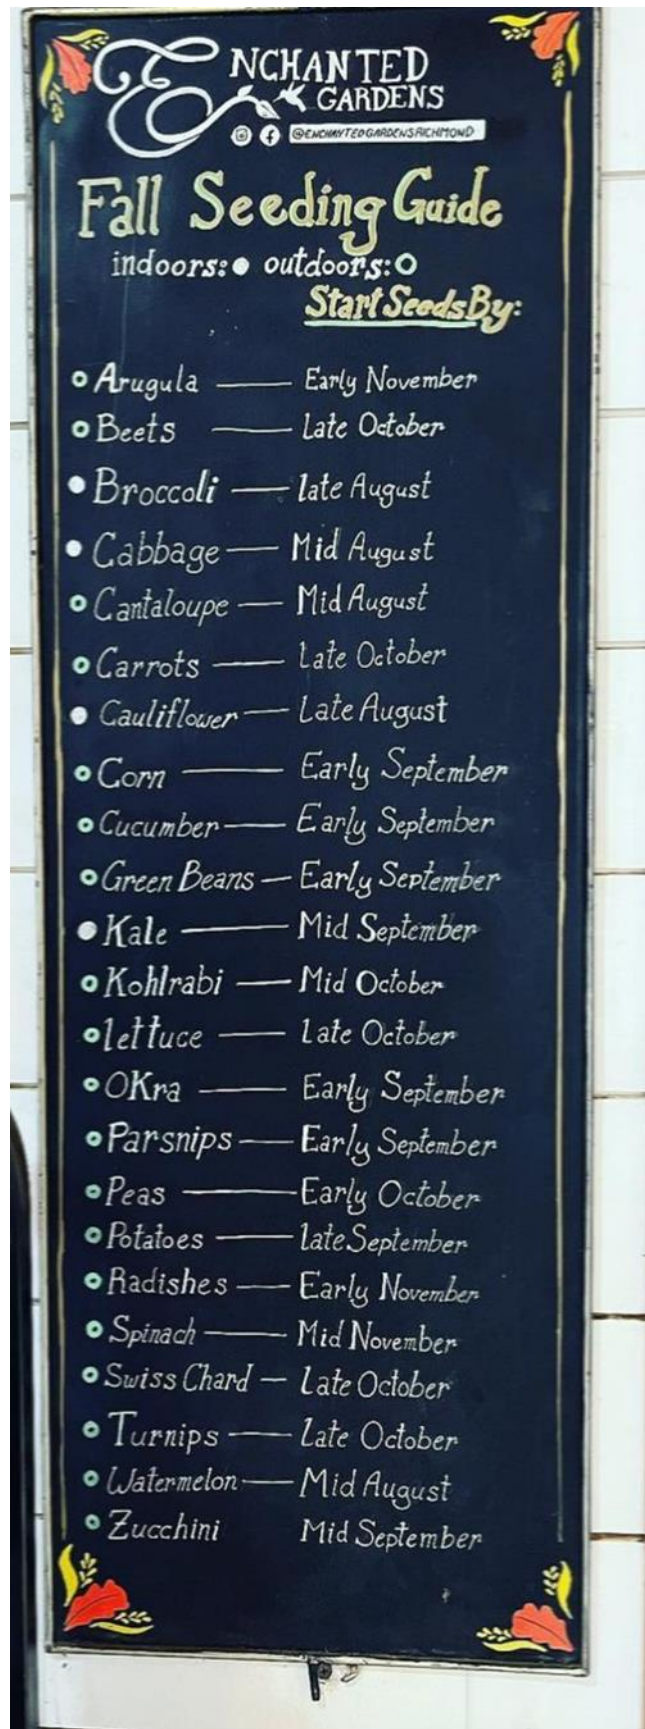 ENCHANTED
GARDENS
@ENCHANTEDGARDENSRICHMOND
Fall Seeding Guide
indoors: outdoors:
Start Seeds By:
Arugula — Early November
Beets — Late October
Broccoli — late August
Cabbage — Mid August
Cantaloupe — Mid August
Carrots — Late October
Cauliflower — Late August
Corn — Early September
Cucumber — Early September
Green Beans — Early September
Kale — Mid September
Kohlrabi — Mid October
lettuce — Late October
OKra — Early September
Parsnips — Early September
Peas — Early October
Potatoes — late September
Radishes — Early November
Spinach — Mid November
Swiss Chard — Late October
Turnips — Late October
Watermelon — Mid August
Zucchini Mid September